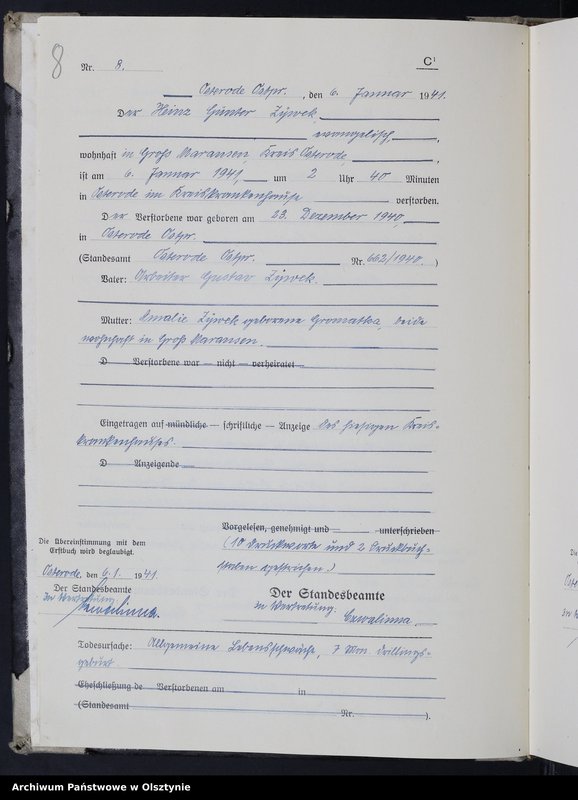 8
Nr. 8. C¹
Osterode Ostpr., den 6. Januar 1941.
Der Heinz Günter Zywek,
evangelisch,
wohnhaft in Groß Maransen, Kreis Osterode,
ist am 6. Januar 1941, um 2 Uhr 40 Minuten
in Osterode im Kreiskrankenhause verstorben.
Der Verstorbene war geboren am 23. Dezember 1940,
in Osterode Ostpr.
(Standesamt Osterode Ostpr. Nr. 662/1940.)
Vater: Arbeiter Gustav Zywek.
Mutter: Amalie Zywek geborene Gromatka, beide
wohnhaft in Groß Maransen.
D Verstorbene war — nicht — verheiratet
Eingetragen auf mündliche — schriftliche — Anzeige des hiesigen Kreis-
krankenhauses.
D Anzeigende
Vorgelesen, genehmigt und unterschrieben
(10 Druckworte und 2 Druckbuch-
staben gestrichen.)
Die Übereinstimmung mit dem
Erstbuch wird beglaubigt.
Osterode, den 6.1. 1941.
Der Standesbeamte
In Vertretung
Der Standesbeamte
In Vertretung.
Czwalinna
Todesursache: Allgemeine Lebensschwäche, 7 Mon. Drillings-
geburt
Eheschließung de Verstorbenen am in
(Standesamt Nr. ).
Archiwum Państwowe w Olsztynie